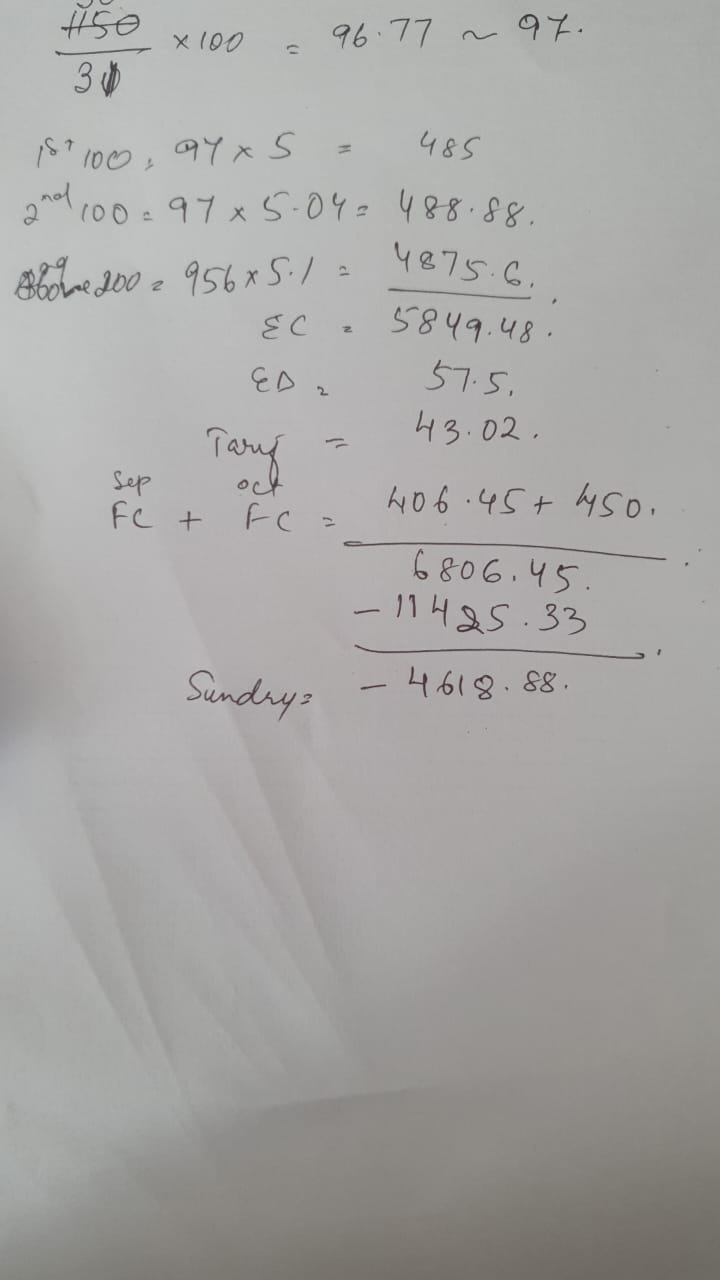 30
31 × 100 = 96.77 ~ 97.
1st 100 = 97 × 5 = 485
2nd 100 = 97 × 5.04 = 488.88.
Above 200 = 956 × 5.1 = 4875.6.
EC = 5849.48.
ED = 57.5.
Tariff = 43.02.
Sep oct
FC + FC = 406.45 + 450.
6806.45.
- 11425.33
Sundry = - 4618.88.